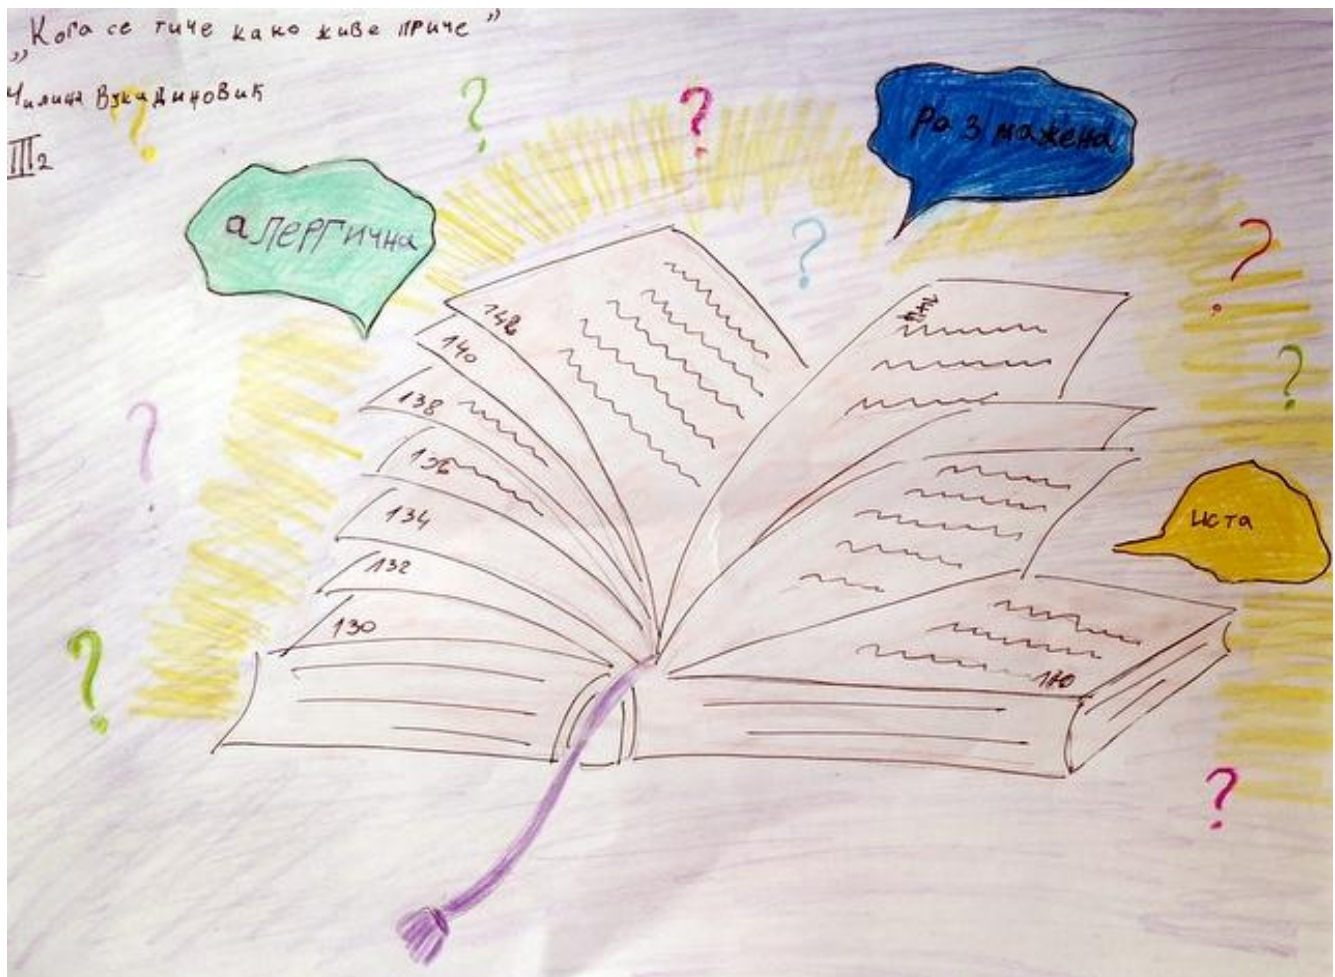 „Кога се тиче како живе приче”
Вукадиновић
III2
алергична
Размажена
иста
148
140
138
136
134
132
130
170